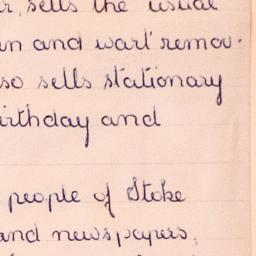 r, sells the usual
n and wart remov-
so sells stationary
irthday and
people of Stoke
and newspapers,